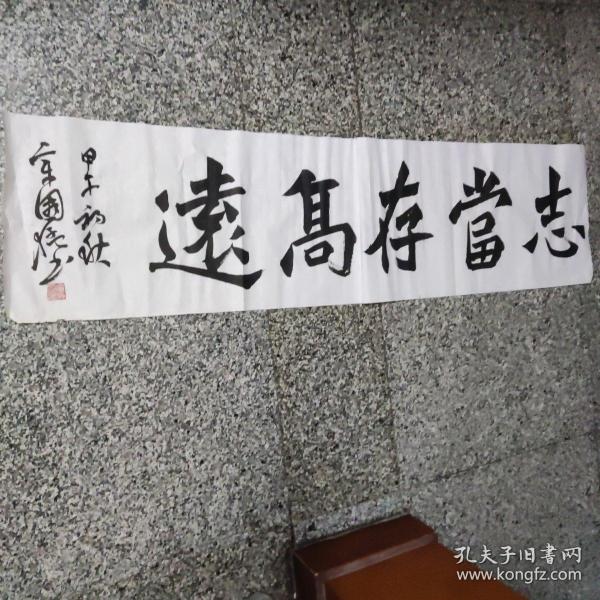 志當存高遠
甲午初秋
國
孔夫子旧書网
www.kongfz.com